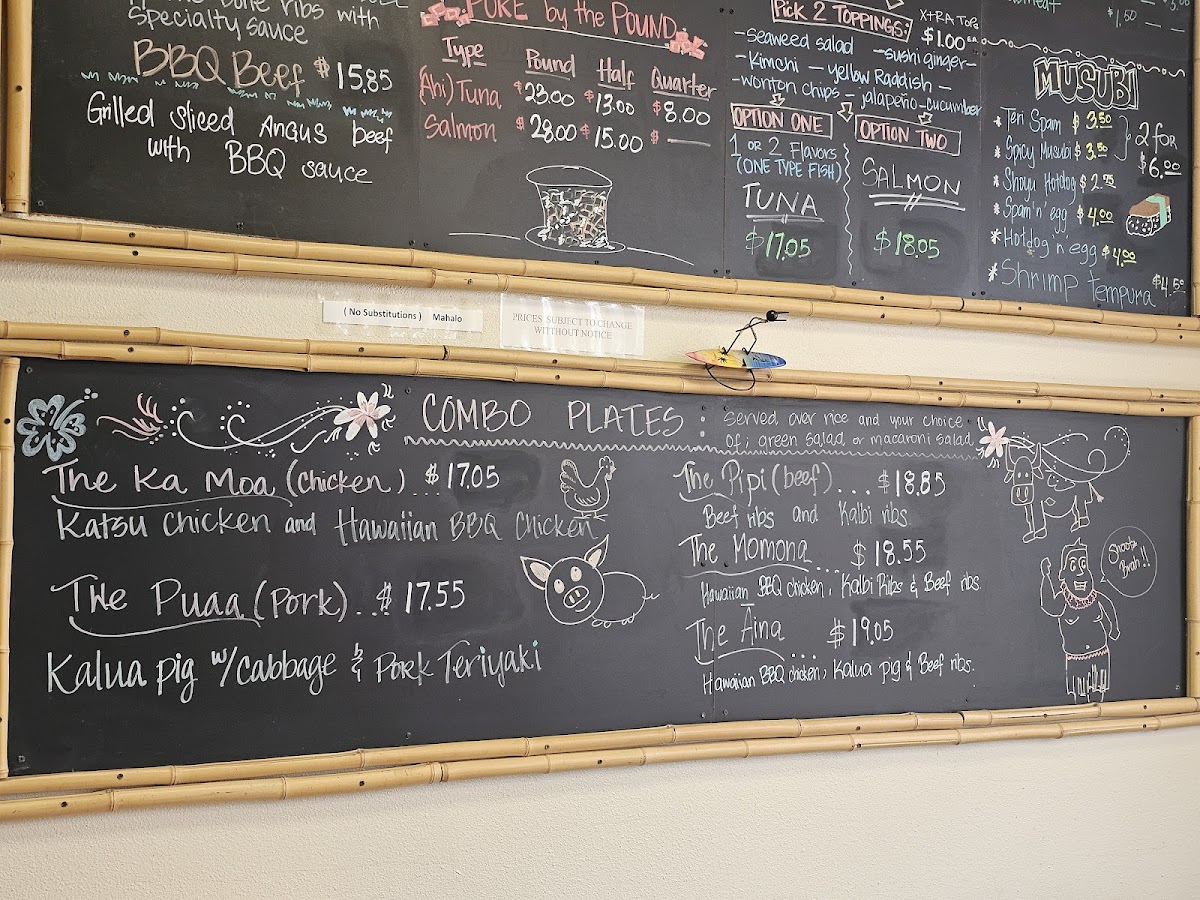 bone ribs with
specialty sauce
BBQ Beef $15.85
Grilled sliced Angus beef
with BBQ sauce
POKE by the POUND
Type Pound Half Quarter
(Ahi) Tuna $23.00 $13.00 $8.00
Salmon $28.00 $15.00 $ —
Pick 2 TOPPINGS: XTRA TOPS
$1.00 EA
-seaweed salad -sushi ginger-
-Kimchi - yellow Raddish -
-wonton chips - jalapeño -cucumber
OPTION ONE
1 OR 2 Flavors
(ONE TYPE FISH)
TUNA
$17.05
OPTION TWO
SALMON
$18.05
$1.50 —
MUSUBI
* Teri Spam $3.50
* Spicy Musubi $3.50
} 2 FOR
$6.00
* Shoyu Hotdog $2.75
* Spam 'n' egg $4.00
* Hotdog 'n' egg $4.00
* Shrimp tempura $4.5
( No Substitutions ) Mahalo
PRICES SUBJECT TO CHANGE
WITTHOUT NOTICE
COMBO PLATES: served over rice and your choice
of; green salad or macaroni salad
The Ka Moa (chicken)...$17.05
Katsu chicken and Hawaiian BBQ chicken
The Puaa (pork)...$17.55
Kalua pig w/cabbage & Pork Teriyaki
The Pipi (beef).... $18.85
Beef ribs and Kalbi ribs.
The Momona.... $18.55
Hawaiian BBQ chicken, Kalbi Ribs & Beef ribs.
The Āina... $19.05
Hawaiian BBQ chicken, Kalua pig & Beef ribs.
Shoots
Brah!!